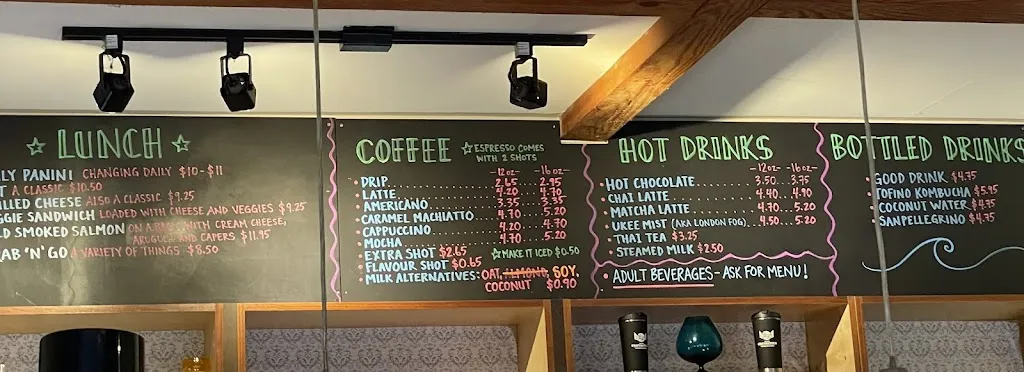 LUNCH
LY PANINI CHANGING DAILY $10-$11
T A CLASSIC $10.50
ILLED CHEESE ALSO A CLASSIC $9.25
GGIE SANDWICH LOADED WITH CHEESE AND VEGGIES $9.25
D SMOKED SALMON ON A BAGEL WITH CREAM CHEESE,
ARUGULA AND CAPERS $11.95
AB 'N' GO A VARIETY OF THINGS $8.50
COFFEE ESPRESSO COMES
WITH 2 SHOTS
-12oz- -16oz-
DRIP 2.65 2.95
LATTE 4.20 4.70
AMERICANO 3.35 3.35
CARAMEL MACCHIATTO 4.70 5.20
CAPPUCCINO 4.20 4.70
MOCHA 4.70 5.20
EXTRA SHOT $2.65 MAKE IT ICED $0.50
FLAVOUR SHOT $0.65
MILK ALTERNATIVES: OAT, ALMOND, SOY,
COCONUT $0.90
HOT DRINKS
-12oz- -16oz-
HOT CHOCOLATE 3.50 3.75
CHAI LATTE 4.40 4.90
MATCHA LATTE 4.70 5.20
UKEE MIST (AKA LONDON FOG) 4.50 5.20
THAI TEA $3.25
STEAMED MILK $2.50
ADULT BEVERAGES - ASK FOR MENU!
BOTTLED DRINKS
GOOD DRINK $4.75
TOFINO KOMBUCHA $5.95
COCONUT WATER $4.75
SANPELLEGRINO $4.75